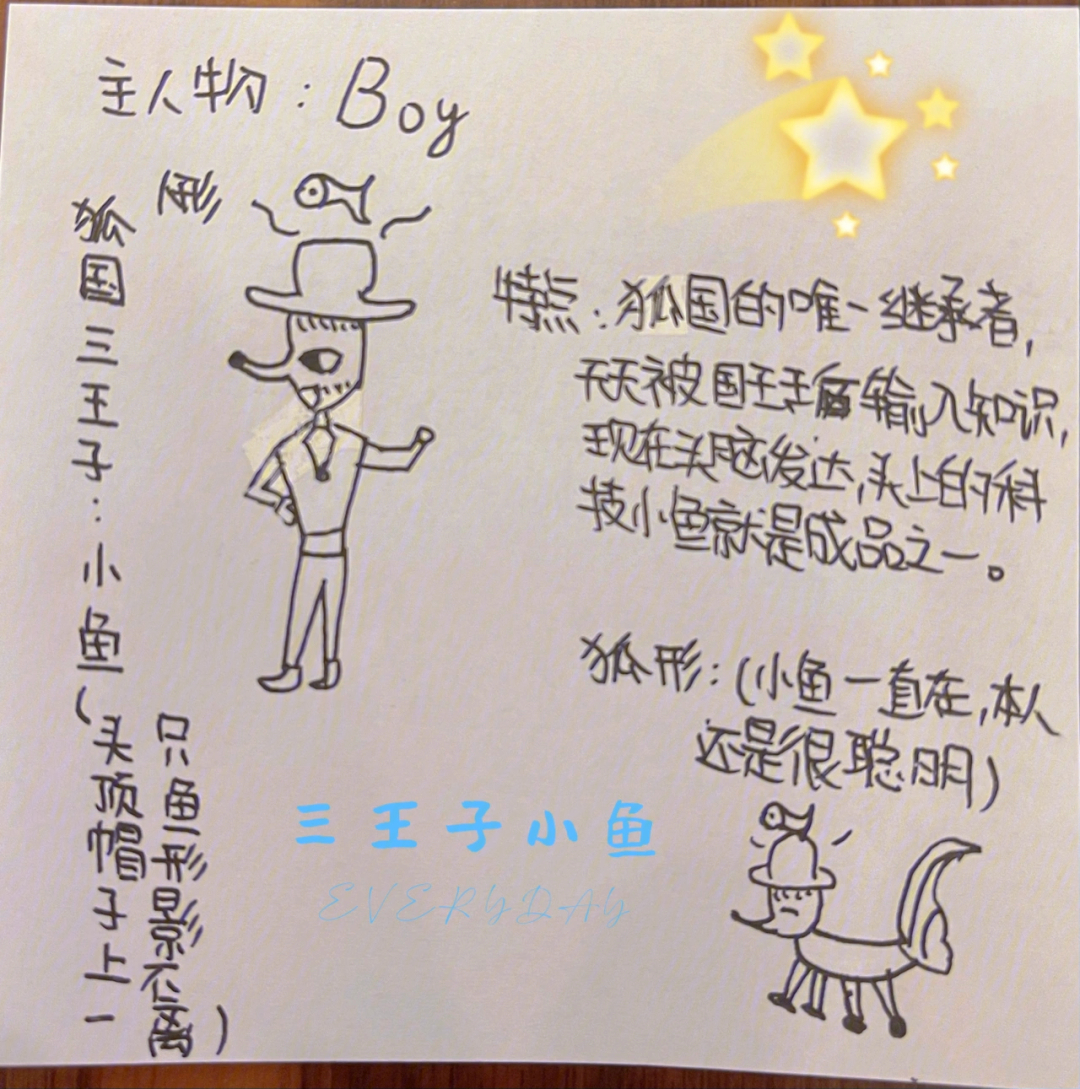 主人物：Boy
人形
狐国三王子：小鱼(头顶帽子上一
只鱼形影不离)
特点：狐国的唯一继承者，
天天被国王王后输入知识，
现在头脑发达，头上的科
技小鱼就是成品之一。
狐形：(小鱼一直在，本人
还是很聪明)
三王子小鱼
EVERYDAY